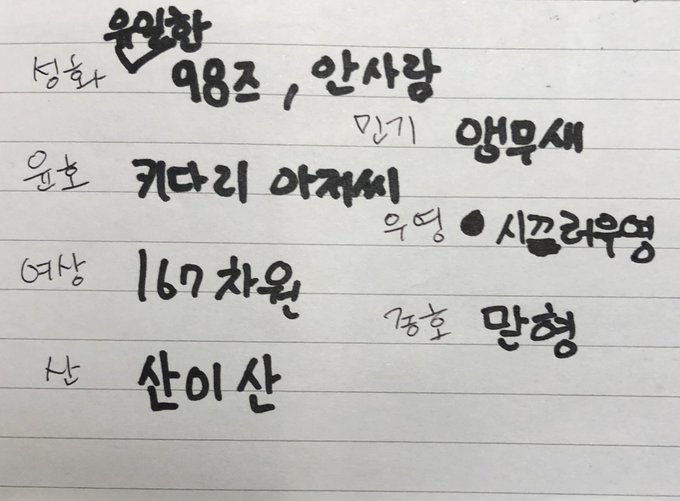 유일한
성화 98즈, 안사람
민기 앵무새
윤호 키다리 아저씨
우영 시끄러우영
여상 167차원
종호 맏형
산 산이 산